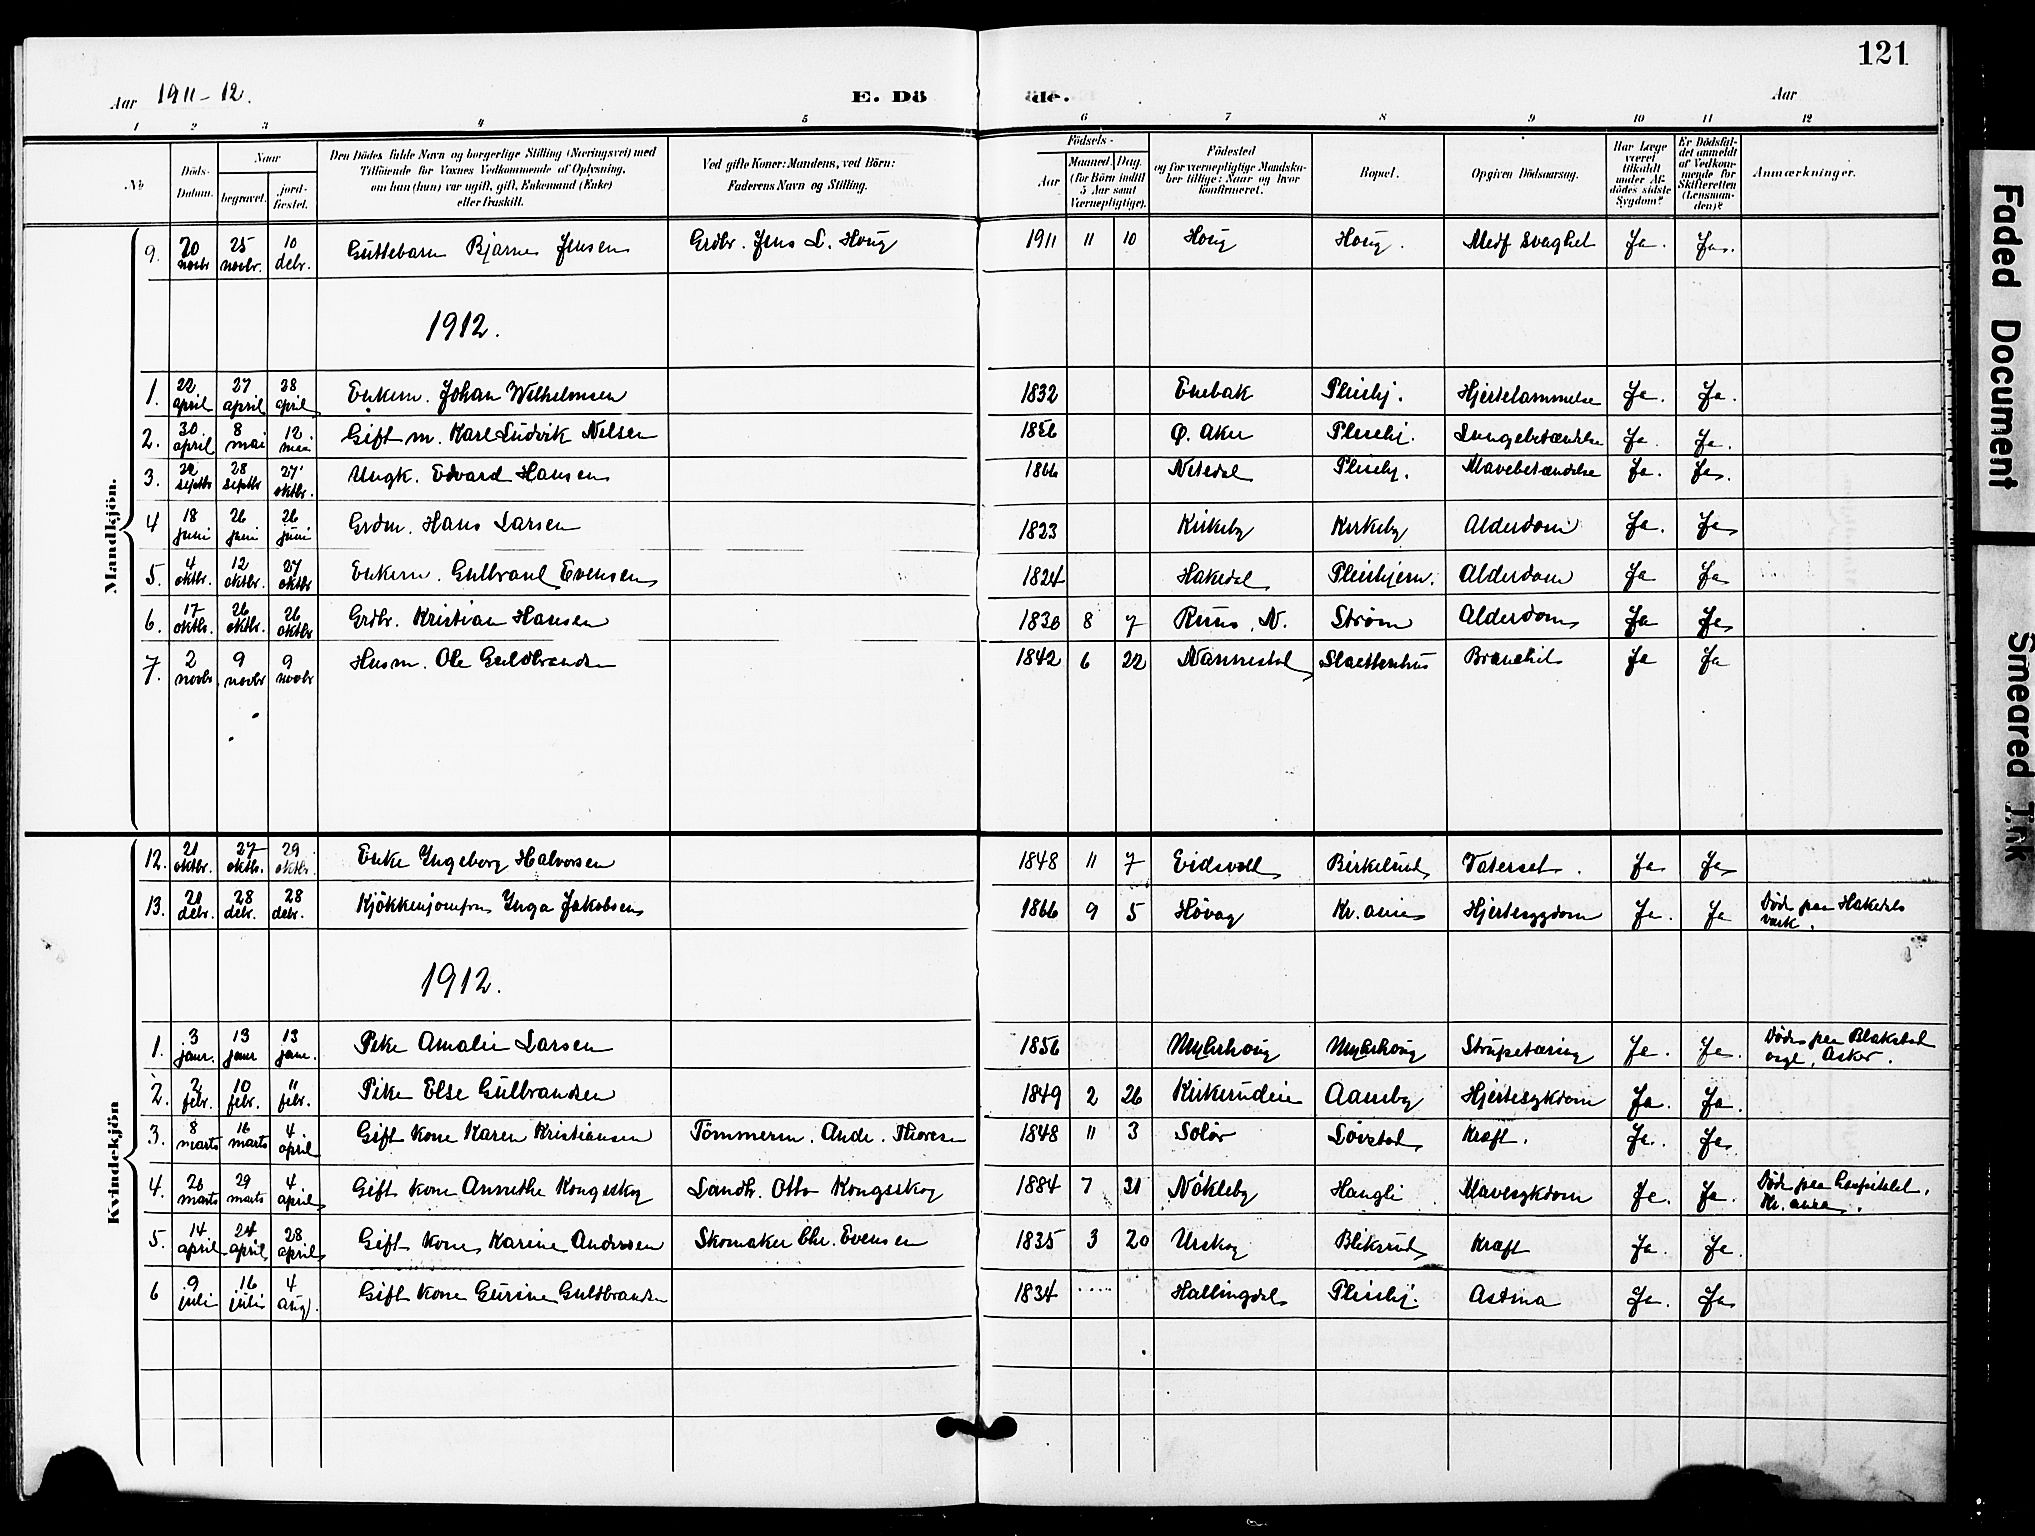 121
Aar 1911-12. E. Dö de. Aar
1 2 3 4 5 6 7 8 9 10 11 12
No Döds-Datum. Naar begravet. jord-fæstet. Den Dödes fulde Navn og borgerlige Stilling (Næringsvei) med Tilföiende for Voxnes Vedkommende af Oplysning, om han (hun) var ugift, gift, Enkemand (Enke) eller fraskilt. Ved gifte Koner: Mandens, ved Börn: Faderens Navn og Stilling. Födsels- Aar Maaned. Dag. (for Börn indtil 5 Aar samt Værnepligtige). Födested og for værnepligtige Mandskaber tillige: Naar og hvor konfirmeret. Bopæl. Opgiven Dödsaarsag. Har Læge været tilkaldt under Afdödes sidste Sygdom? Er Dödsfaldet anmeldt af Vedkommende for Skifteretten (Lensmanden)? Anmærkninger.
Mandkjön.
9. 20 novbr 25 novbr. 10 debr. Guttebarn Bjarne Jensen Grdbr. Jens L. Houg 1911 11 10 Houg Houg. Medf Svaghet Ja. Ja.
1912.
1. 22 april 27 april 28 april Enkem. Johan Wilhelmsen 1832 Enebak Pleiehj. Hjertelammelse Ja. Ja.
2. 30 april 8 mai 12 mai Gift m. Karl Ludvik Nilsen 1856 Ø. Aker Pleiehj. Lungebetændelse Ja. Ja.
3. 22 septbr 28 septbr 27 oktbr. Ungk. Edvard Hansen 1866 Nitedal Pleiehj. Mavebetændelse Ja. Ja.
4 18 juni 26 juni 26 juni Grdm. Hans Larsen 1823 Kirkeby Kirkeby Alderdom Ja. Ja
5. 4 oktbr. 12 oktbr. 27 oktbr Enkem. Gulbrand Evensen 1824 Hakedal Pleiehjem. Alderdom Ja Ja
6. 17 oktbr. 26 oktbr. 26 oktbr Grdbr. Kristian Hansen 1830 8 7 Ruus, N. Strøm Alderdom Ja Ja
7. 2 novbr. 9 novbr 9 novbr Husm. Ole Guldbrandsen 1842 6 22 Nannestad Slaettenhus Bronchit Ja Ja
Kvindekjön
12. 21 oktbr. 27 oktbr. 29 oktbr. Enke Yngeborg Halvorsen 1848 11 7 Eidsvold Birkelund Vatersot. Ja Ja
13. 20 debr. 28 debr. 28 debr. Kjøkkenjomfru Ynga Jakobsen 1866 9 5 Høvag Kr. ania Hjertesygdom Ja. Ja Døde paa Hakedals
værk.
1912.
1. 3 janr. 13 janr 13 janr. Pike Amalie Larsen 1856 Myhrhoug Myhrhoug Strupetæring Ja. Ja. Døde paa Blakstad
asyl, Asker.
2. 2 febr. 10 febr. 11 febr. Pike Else Gulbrandsen 1849 2 26 Kirkerudeie Aamby Hjertesykdom Ja. Ja.
3. 8 marts 16 marts 4 april Gift Kone Karen Kristiansen Tömmerm. Andr. Thoresen 1848 11 3 Solør Løvstad Kræft. Ja. Ja
4. 20 marts 29 marts 4 april Gift Kone Annethe Kongsskog Landh. Otto Kongsskog 1884 7 31 Nökleby Haugli Mavesykdom Ja. Ja. Døde paa hospitalet,
Kr. ania.
5. 14 april 24 april 28 april Gift Kone Karine Andersen Skomaker Chr. Evensen 1835 3 20 Urskog Bliksrud Kræft Ja. Ja.
6 9 juli 16 juli 4 aug. Gift Kone Gurine Guldbrandsen 1834 Hallingdal Pleiehj. Astma Ja. Ja
Faded Document
Smeared Ink